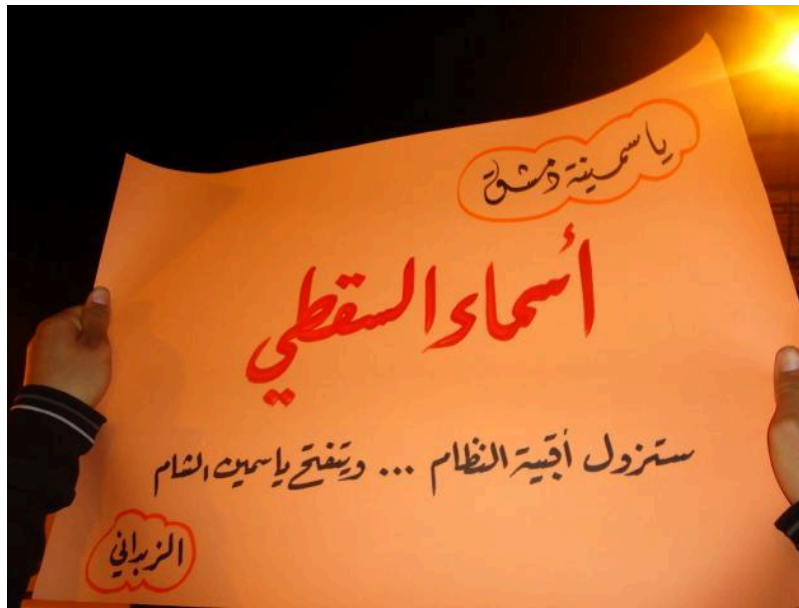 ياسمينة دمشق
أسماء السقطي
ستزول أقبية النظام ... ويتفتح ياسمين الشام
الزبداني